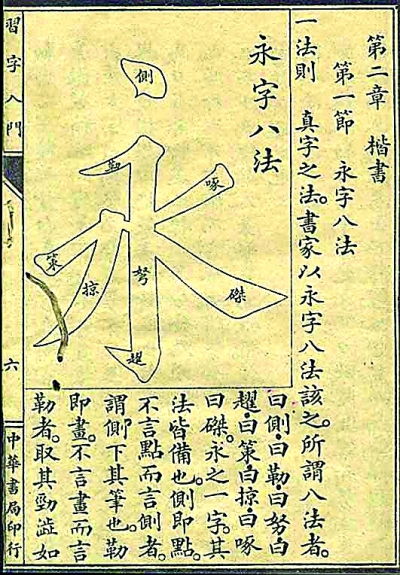 第二章 楷書
第一節 永字八法
一法則 真字之法。書家以永字八法該之。所謂八法者。
永字八法
側
勒
努
趯
策
掠
啄
磔
曰側。曰勒。曰努。曰
趯。曰策。曰掠。曰啄
曰磔。永之一字。其
法皆備也。側即點。
不言點而言側者。
謂側下其筆也。勒
即畫。不言畫而言
勒者。取其勁澁如
習字入門
六
中華書局印行